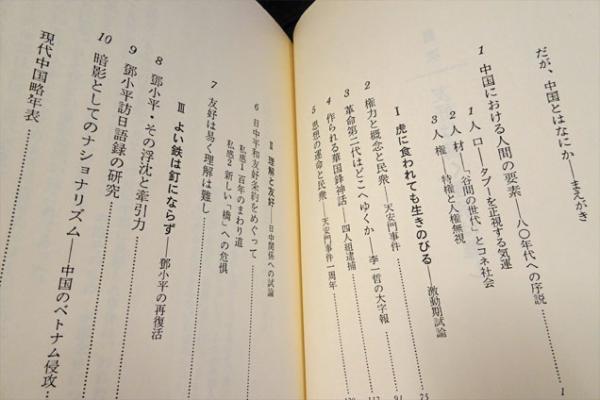 だが、中国とはなにか——まえがき 1
1 中国における人間の要素——八〇年代への序説
1 人口——タブーを正視する気運
2 人材——「谷間の世代」とコネ社会
3 人権——特権と人権無視
Ⅰ 虎に食われても生きのびる——激動期試論 25
2 権力と概念と民衆——天安門事件 91
3 革命第二代はどこへゆくか——李一哲の大字報
4 作られる華国鋒神話——四人組逮捕
5 思想の運命と民衆——天安門事件一周年
Ⅱ 理解と友好——日中関係への試論
6 日中平和友好条約をめぐって
私感1 百年のまわり道
私感2 新しい「橋」への危惧
7 友好は易く理解は難し
Ⅲ よい鉄は釘にならず——鄧小平の再復活
8 鄧小平・その浮沈と牽引力
9 鄧小平訪日語録の研究
10 暗影としてのナショナリズム——中国のベトナム侵攻
現代中国略年表